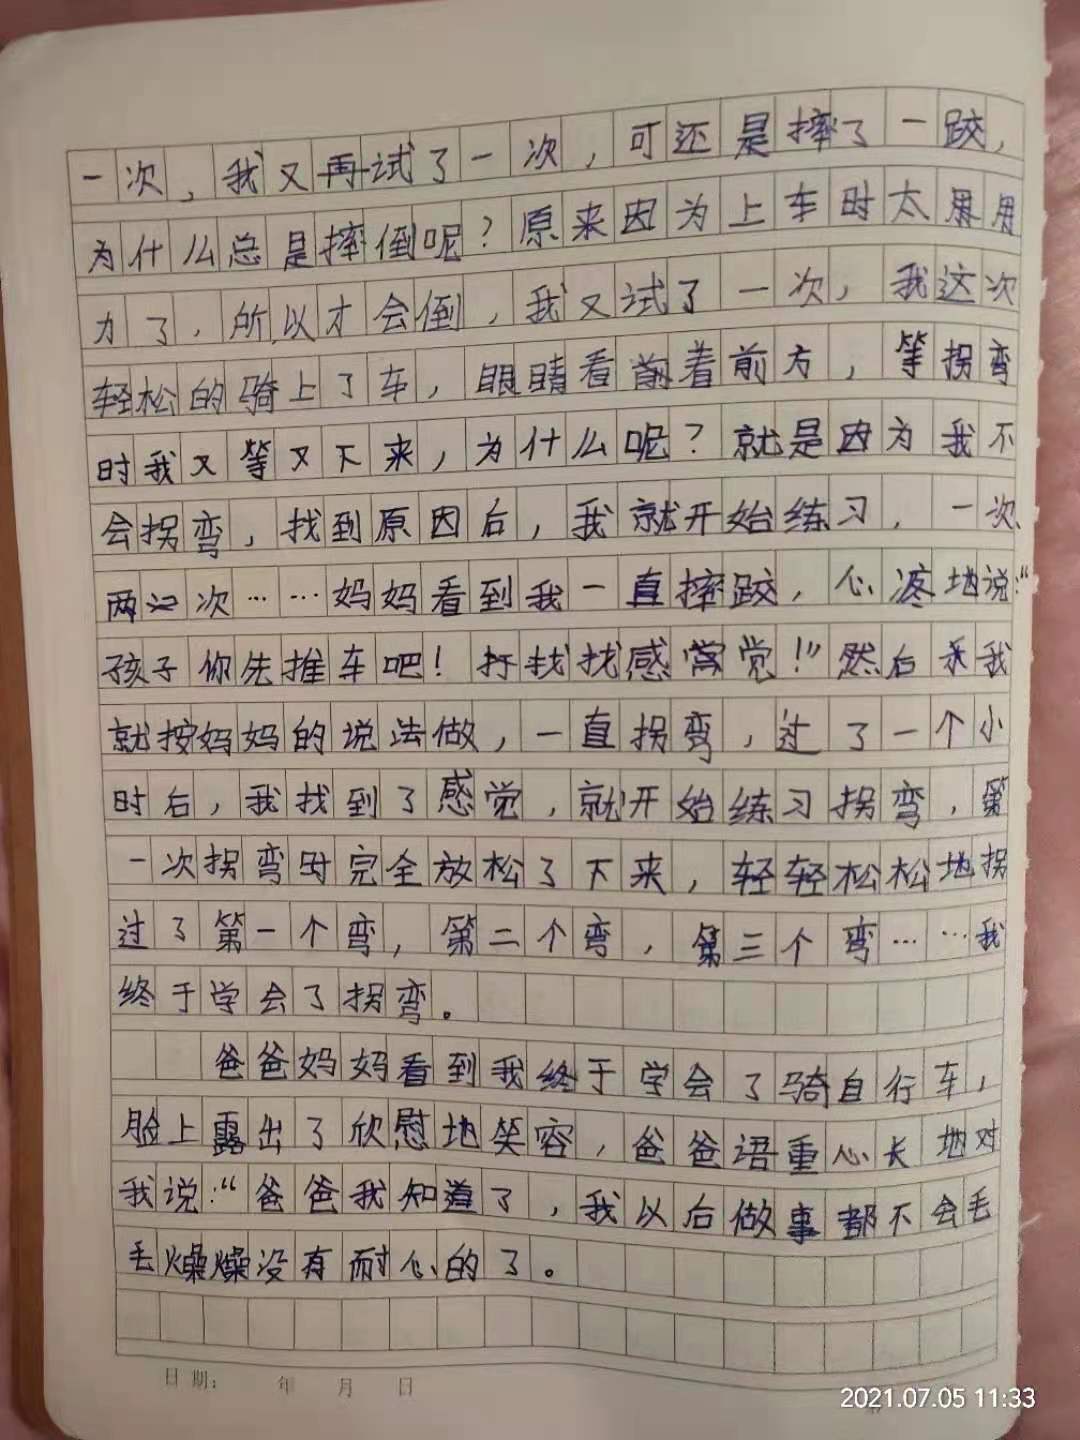 一次，我又再试了一次，可还是摔了一跤，
为什么总是摔倒呢？原来因为上车时太用用
力了，所以才会倒，我又试了一次，我这次
轻松的骑上了车，眼睛看前着前方，等拐弯
时我又等又下来，为什么呢？就是因为我不
会拐弯，找到原因后，我就开始练习，一次、
两次……妈妈看到我一直摔跤，心疼地说：“
孩子你先推车吧！找找感觉！”然后我
就按妈妈的说法做，一直拐弯，过了一个小
时后，我找到了感觉，就开始练习拐弯，第
一次拐弯时完全放松了下来，轻轻松松地拐
过了第一个弯，第二个弯，第三个弯……我
终于学会了拐弯。
爸爸妈妈看到我终于学会了骑自行车，
脸上露出了欣慰地笑容，爸爸语重心长地对
我说：“爸爸我知道了，我以后做事都不会毛
毛燥燥没有耐心的了。
日期： 年 月 日
2021.07.05 11:33